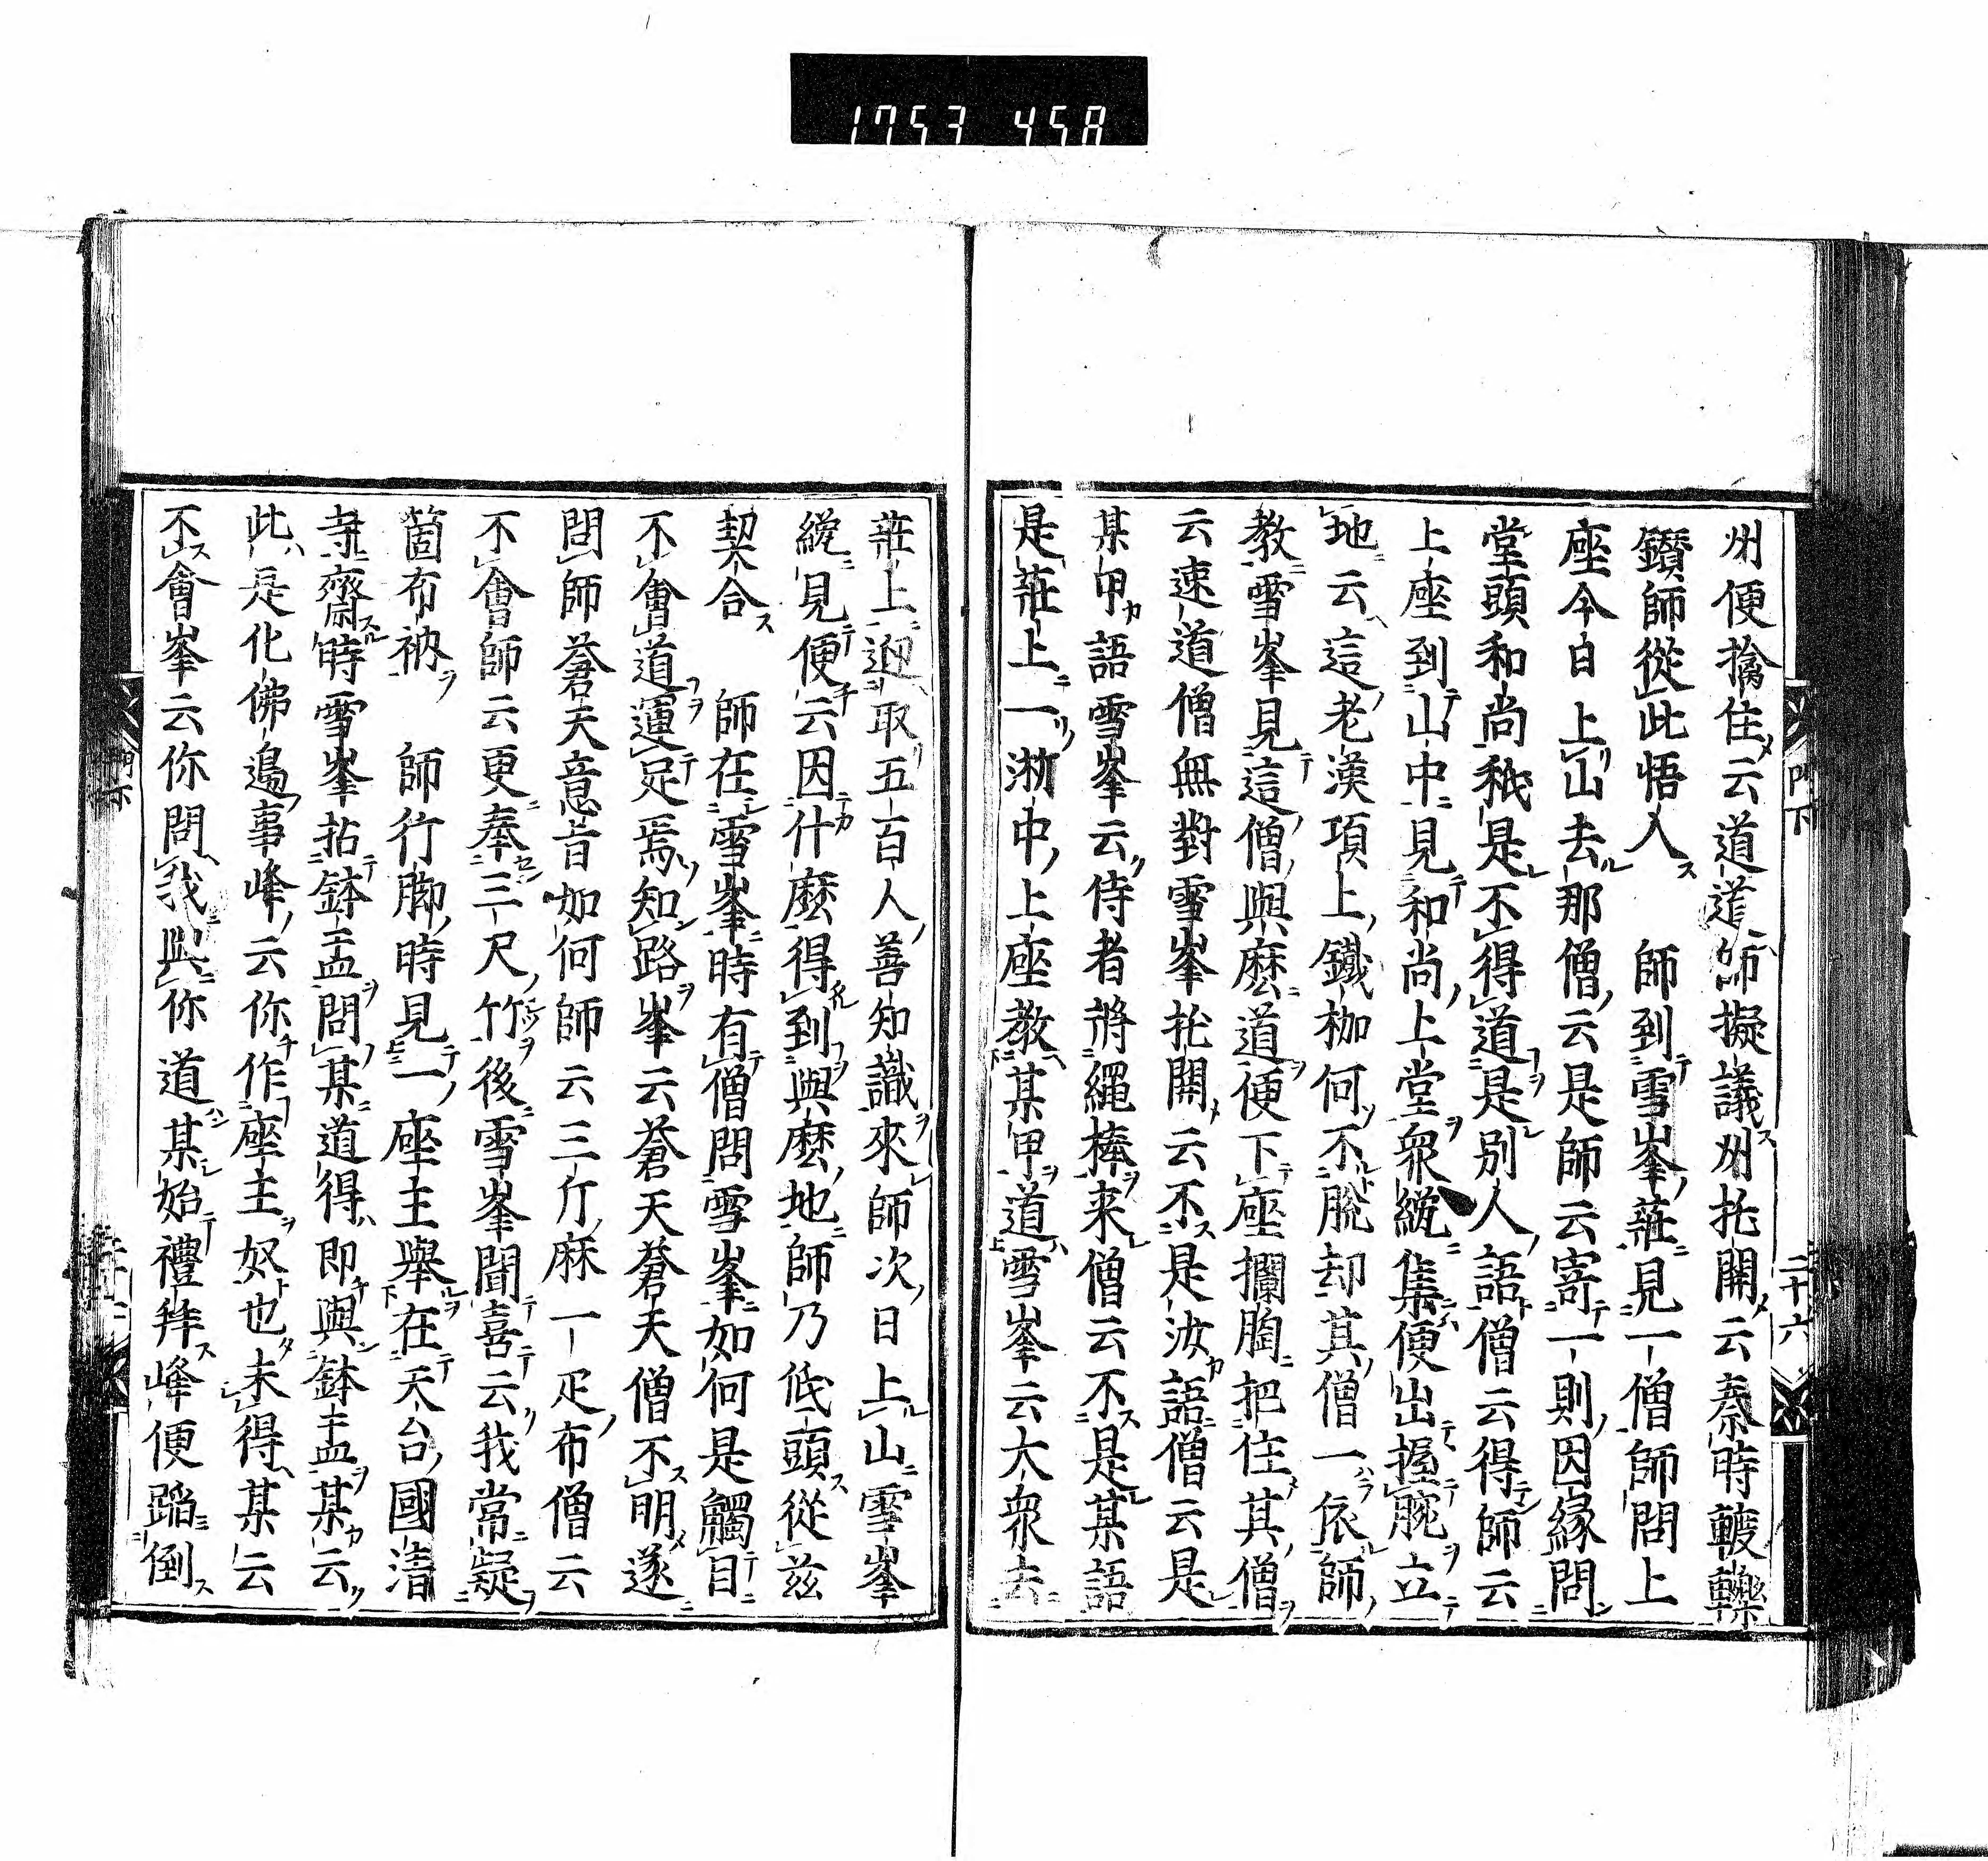 1753 458
州便擒住云道道師擬議州托開云秦時𨍏轢
鑽師從此悟入　師到雪峯莊見一僧師問上
座今日上山去那僧云是師云寄一則因縁問
堂頭和尚秖是不得道是別人語僧云得師云
上座到山中見和尚上堂衆纔集便出握腕立
地云這老漢項上鐵枷何不脫却其僧一依師
教雪峯見這僧與麽道便下座攔胸把住其僧
云速道僧無對雪峯托開云不是汝語僧云是
某甲語雪峯云侍者將繩棒来僧云不是某語
是莊上一浙中上座教某甲道雪峯云大衆去
門下
二十六
莊上迎取五百人善知識來師次日上山雪峯
纔見便云因什麽得到與麽地師乃低頭從茲
契合　師在雪峯時有僧問雪峯如何是觸目
不會道運足焉知路峯云蒼天蒼天僧不明遂
問師蒼天意旨如何師云三斤麻一疋布僧云
不會師云更奉三尺竹後雪峯聞喜云我常疑
箇布衲　師行脚時見一座主舉在天台國清
寺齋時雪峯拈鉢盂問某道得即與鉢盂某云
此是化佛邊事峰云你作座主奴也未得某云
不會峯云你問我與你道某始禮拜峰便蹈倒